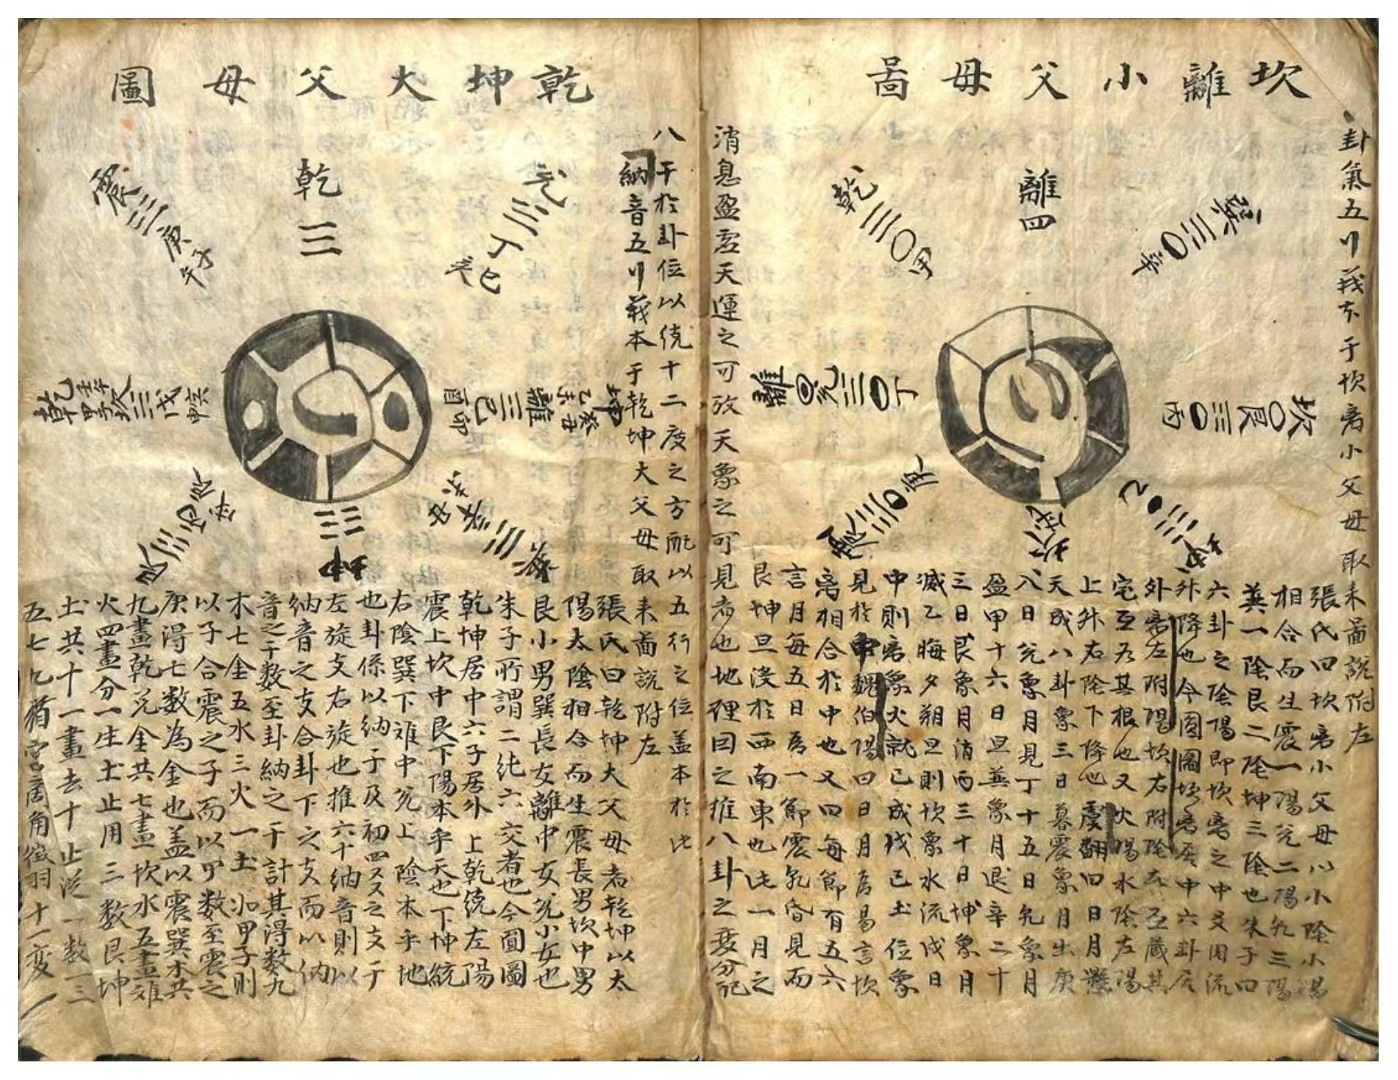 坎離小父母啚
卦氣五行莪本于坎离小父母取耒啚説附左
離四
乾三〇甲
巽三〇辛
離〇兑三〇丁
坎〇艮三〇丙
震三〇庚
坤三〇乙
坎戊
張氏曰坎离小父母以小陰小陽
相合而生震一陽兑二陽乾三陽
巽一陰艮二陰坤三陰也朱子曰
六卦之陰陽即坎离之中爻周流
升降也今圖圖坎离居中六卦居
外离左附陽坎右附陰亦互藏其
宅互为其根也又火陽水陰左陽
上升右陰下降也虞翻曰日月懸
天成八卦象三日暮震象月出庚
八日兑象月見丁十五日乾象月
盈甲十六日旦巽象月退辛二十
三日艮象月消丙三十日坤象月
滅乙晦夕朔旦則坎象水流戊日
中則离象火就已成戊已土位象
見於中魏伯陽曰日月為易言坎
离相合於中也又曰每節有五六
言月每五日為一節震乾昏見而
艮坤旦没於西南東也此一月之
消息盈虚天運之可攷天象之可見者也地理因之推八卦之變分配
八干於卦位以统十二度之方配以五行之位盖本於此
乾坤大父母圖
納音五行莪本于乾坤大父母取耒啚説附左
乾三
震三庚子午
兑三丁巳亥
離三己卯酉
坎三戊寅申
坤乙未癸丑
乾甲子壬午
艮三丙辰戌
巽三辛丑未
坤
張氏曰乾坤大父母者乾坤以太
陽太陰相合而生震長男坎中男
艮小男巽長女離中女兑小女也
朱子所謂二純六交者也今圖圖
乾坤居中六子居外上乾统左陽
震上坎中艮下陽本乎天也下坤統
右陰巽下离中兑上陰本乎地
也卦係以納于及初四爻之支于
左旋支右旋也推六十納音則以
納音之支合卦下之支而以納
音之于数至卦納之于計其得数九
木七金五水三火一土如甲子則
以子合震之子而以甲数至震之
庚得七数為金也盖以震巽木共
九畫乾兑金共七畫坎水五畫離
火四畫分一生土止用三数艮坤
土共十一畫去十止從一数一三
五七九猶宫商角徵羽十一変